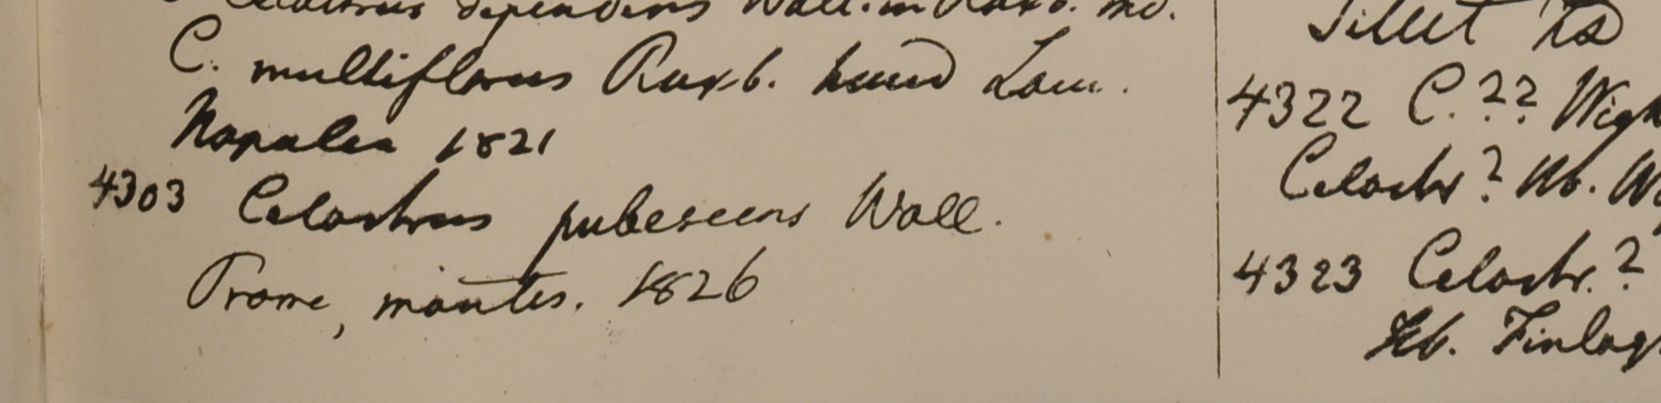 Celastrus dependens Wall. in Roxb. Ind.
C. multiflorus Roxb. haud Lam.
Napalia 1821
4303 Celastrus pubescens Wall.
Prome, montes. 1826
Sillet
4322 C. ?? Wigh
Celastr? Hb. W
4323 Celastr. ?
Hb. Finlay